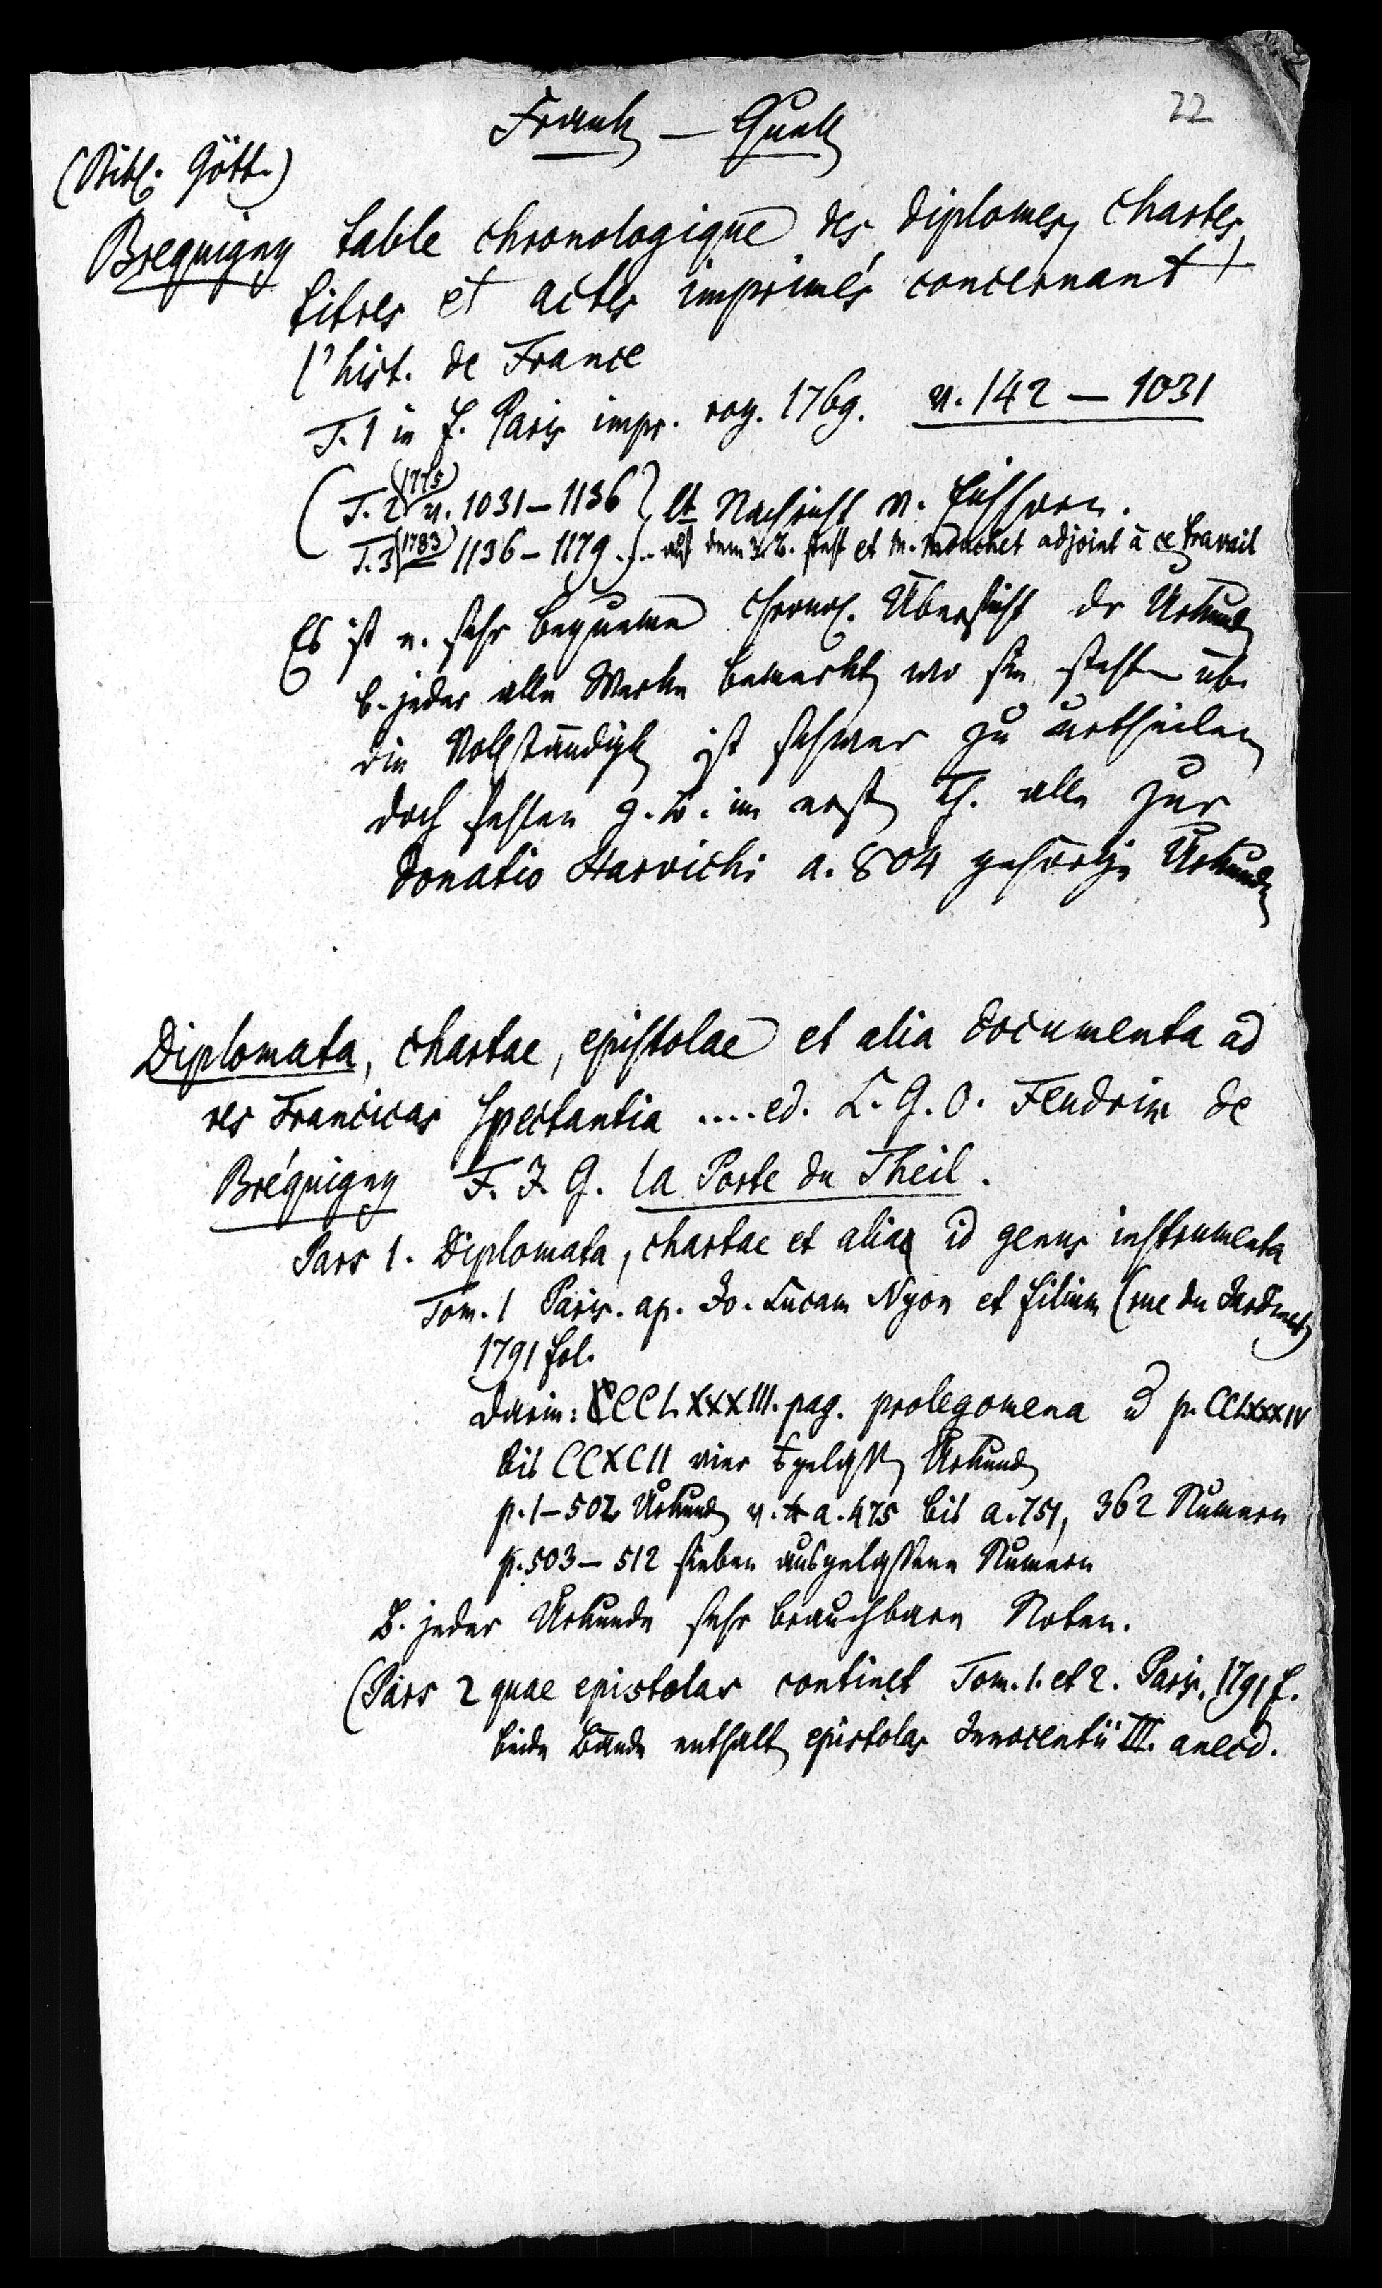 22
Frank — Quell
(Bibl. Gött.)
Brequigny table chronologique des diplomes, chartes,
titres et actes imprimés concernant
l'hist. de France
T. 1 in f. Paris impr. roy. 1769. v. 142 — 1031
(T. 2 (1775) v. 1031 – 1136 } lt Nachricht v. Eichhorn.
T. 3 (1783) 1136 – 1179 . . . auf dem 3 B. steht et M. Mouchet adjoint à ce travail
Es ist e. sehr bequeme chronol. Übersicht dr Urkund
b. jeder alle Werke bemerkt, wo sie steht üb.
die Vollständigk ist schwer zu urtheilen
doch fehlen z. B. im erst Th. alle zur
donatio Harvichi a. 804 gehörige Urkunde
Diplomata, chartae, epistolae et alia documenta ad
res Francicas spectantia .... ed. L. G. O. Feudrix de
Bréquigny F. J. G. la Porte du Theil.
Pars 1. Diplomata, chartae et alia id genus instrumenta
Tom. 1 Paris. ap. Jo. Lucam Nyon et filium (rue du Jardinet)
1791 fol.
Darin: CCLXXXIII. pag. prolegomena u p. CCLXXXIV
bis CCXCII vier Urkund
p. 1 – 502 Urkund v. a. 475 bis a. 751, 362 Numern
p. 503 – 512 sieben ausgelassene Numern
B. jeder Urkunde sehr brauchbare Noten.
(Pars 2 quae epistolas continet Tom. 1. et 2. Paris. 1791 f.
beide Bände enthalt epistolas Innocentii III. anecd.